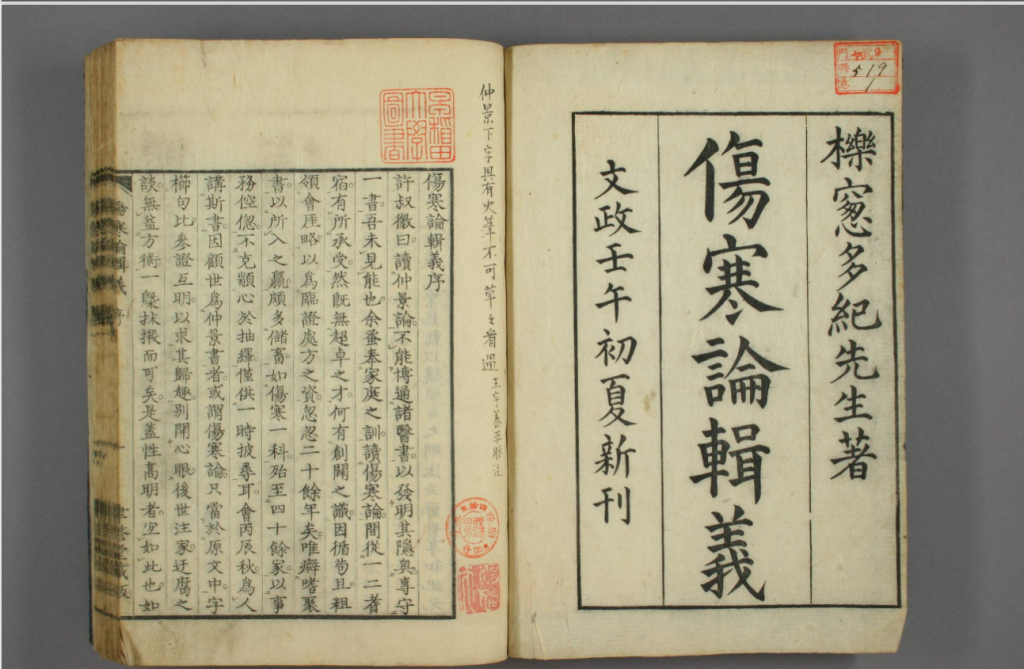 櫟窓多紀先生著
傷寒論輯義
文政壬午初夏新刊
519
仲景下字具有火筆不可草々看過
早稲田大学図書
傷寒論輯義序
許叔微曰讀仲景論不能博通諸醫書以發明其隱奥專守
一書吾未見能也余蚤奉家庭之訓讀傷寒論間從一二耆
宿有所承受然既無超卓之才何有創闢之識因循苟且粗
領會厓略以爲臨證處方之資忽忽二十餘年矣唯癖嗜聚
書以所入之贏頗多儲畜如傷寒一科殆至四十餘家以事
務倥偬不克顓心於抽繹僅供一時披尋耳會丙辰秋爲人
講斯書因顧世爲仲景書者或謂傷寒論只當於原文中字
櫛句比參證互明以求其歸趣別開心眼後世注家迂腐之
談無益方術一槩抹摋而可矣是蓋性高明者宜如此也如
傷寒論輯義 序